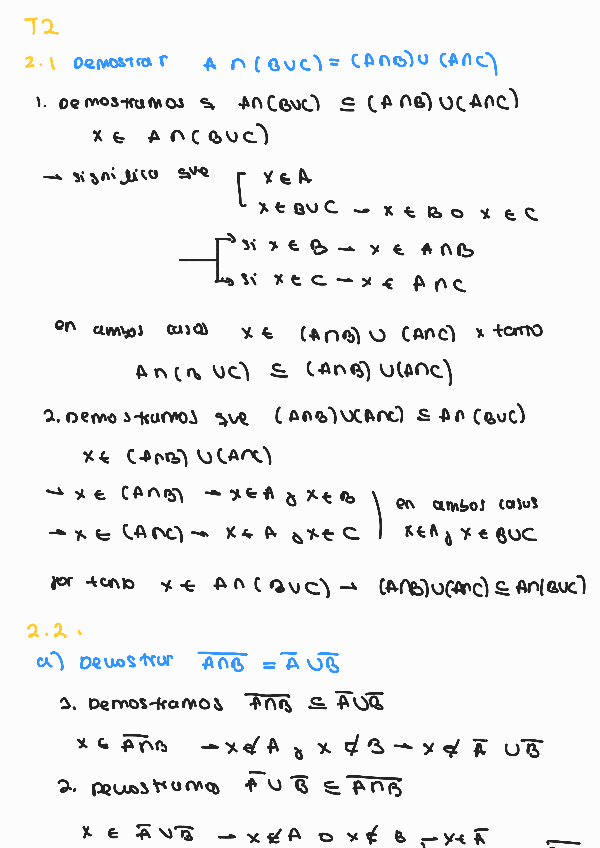 T2
2.1 Demostrar A ∩ (B∪C) = (A∩B) ∪ (A∩C)
1. Demostramos q A∩(B∪C) ⊆ (A∩B) ∪ (A∩C)
x ∈ A ∩ (B∪C)
→ significa que x ∈ A
x ∈ B∪C → x ∈ B o x ∈ C
si x ∈ B → x ∈ A∩B
si x ∈ C → x ∈ A ∩ C
en ambos casos x ∈ (A∩B) ∪ (A∩C) x tanto
A ∩ (B ∪C) ⊆ (A∩B) ∪ (A∩C)
2. Demostramos que (A∩B)∪(A∩C) ⊆ A∩ (B∪C)
x ∈ (A∩B) ∪ (A∩C)
→ x ∈ (A∩B) → x∈A y x∈B en ambos casos
→ x ∈ (A∩C) → x ∈ A y x∈C x∈A y x ∈ B∪C
por tanto x ∈ A∩ (B∪C) → (A∩B)∪(A∩C) ⊆ A∩(B∪C)
2.2.
a) Demostrar A̅∩̅B̅ = A̅ ∪ B̅
1. Demostramos A̅∩̅B̅ ⊆ A̅∪B̅
x ∈ A̅∩̅B̅ → x∉A y x ∉ B → x ∉ A̅ ∪ B̅
2. Demostramos A̅ ∪ B̅ ⊆ A̅∩̅B̅
x ∈ A̅ ∪ B̅ → x∉A o x∉ B → x∈ A̅